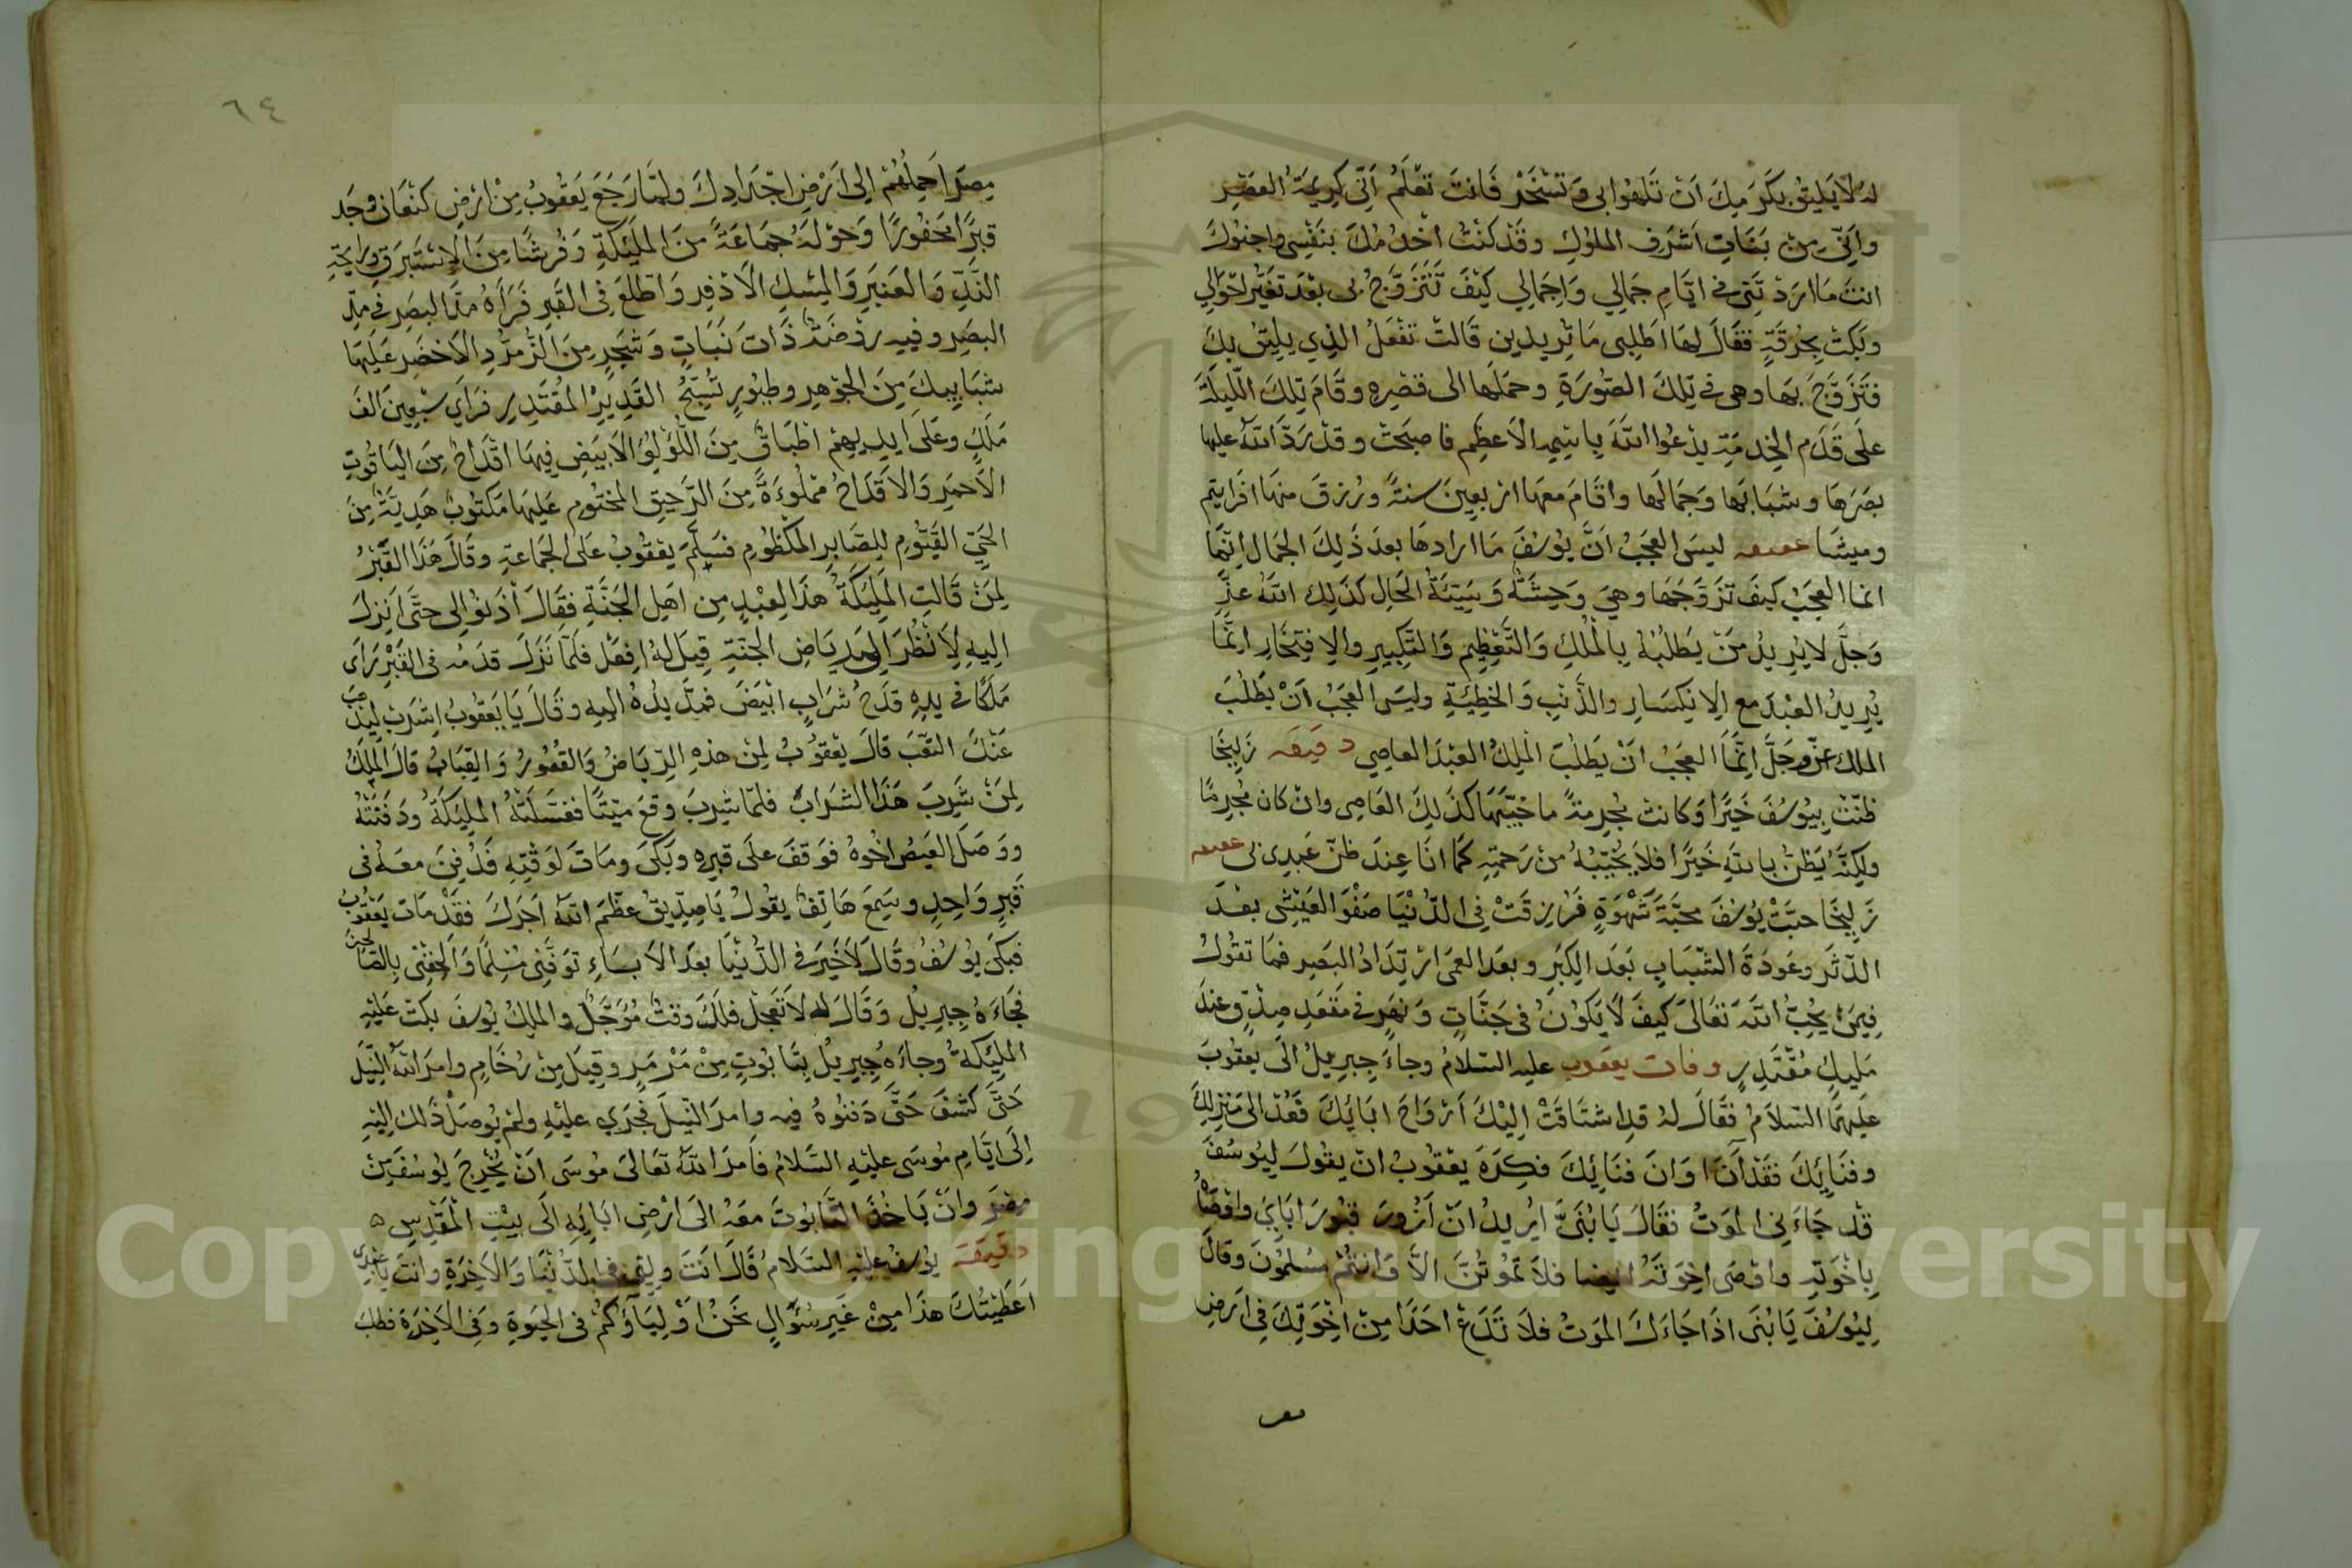 له لا يليق بكرمك ان تلهوا بي وتسخر فانت تعلم اني كريمة العصر
واني من بنات اشرف الملوك وقد كنت اخدمك بنفسي واجنوك
انت ما اردتني في ايام جمالي واجمالي كيف تتزوج بي بعد تغير احوالي
وبكت بحرقة فقال لها اطلبي ما تريدين قالت تفعل الذي يليق بك
فتزوج بها وهي في تلك الصورة وحملها الى قصره وقام تلك الليلة
على قدم الخدمة يدعوا الله باسمه الاعظم فاصبحت وقد رد الله عليها
بصرها وشبابها وجمالها واقام معها اربعين سنة ورزق منها افرايتم
وميشا ليس العجب ان يوسف ما ارادها بعد ذلك الجمال انما
انما العجب كيف تزوجها وهي وحشة وسيئة الحال كذلك الله عز
وجل لا يريد من يطلبه بالملك والتعظيم والتكبير والافتخار انما
يريد العبد مع الانكسار والذنب والخطيئة وليس العجب ان يطلب
الملك عز وجل انما العجب ان يطلب الملك العبد العاصي دقيقه زليخا
ظنت بيوسف خيرا وكانت مجرمة ما خيبها كذلك العاصي وان كان مجرما
ولكنه يظن بالله خيرا فلا يخيبه من رحمته كما انا عند ظن عبدي بي
زليخا حبت يوسف محبة شهوة فرزقت في الدنيا صفو العيش بعد
الدثر وعودة الشباب بعد الكبر وبعد العمى ارتداد البصر فما تقول
فيمن يحب الله تعالى كيف لا يكون في جنات ونهر في مقعد صدق عند
مليك مقتدر وفات يعقوب عليه السلام وجاء جبريل الى يعقوب
عليهما السلام فقال له قد اشتاقت اليك ارواح ابائك فعد الى منزلك
وفنائك فقد آن اوان فنائك فكره يعقوب ان يقول ليوسف
قد جاءني الموت فقال يا بني اريد ان ازور قبور اباي واوصاه
باخوته واوصى اخوته ايضا فلا تموتن الا وانتم مسلمون وقال
ليوسف يا بني اذا جاءك الموت فلا تدع احدا من اخوتك في ارض
مصر
٦٤
مصر احملهم الى ارض اجدادك ولما رجع يعقوب من ارض كنعان وجد
قبرا محفورا وحوله جماعة من المليكة وفرشا من الاستبرق ورايحة
الند والعنبر والمسك الاذفر واطلع في القبر فراه مد البصر في مد
البصر وفيه روضة ذات نبات وشجر من الزمرد الاخضر عليها
شبابيك من الجوهر وطيور تسبح القدير المقتدر فراي سبعين الف
ملك وعلى ايديهم اطباق من اللؤلؤ الابيض فيها اقداح من الياقوت
الاحمر والاقداح مملوءة من الرحيق المختوم عليها مكتوب هدية من
الحي القيوم للصابر المكظوم فسلم يعقوب على الجماعة وقال هذا القبر
لمن قالت المليكة هذا لعبد من اهل الجنة فقال أذنوا لي حتى انزل
اليه لانظر الى رياض الجنة قيل له افعل فلما نزل قدمه في القبر راى
ملكا في يده قدح شراب ابيض فمد يده اليه وقال يا يعقوب اشرب ليذهب
عنك التعب قال يعقوب لمن هذه الرياض والقصور والقباب قال الملك
لمن شرب هذا الشراب فلما شرب وقع ميتا فغسلته المليكة ودفنته
ووصل العيص اخوه فوقف على قبره وبكى ومات لوقته فدفن معه في
قبر واحد وسمع هاتف يقول يا صديق عظم الله اجرك فقد مات يعقوب
فبكى يوسف وقال لا خير في الدنيا بعد الاباء توفني مسلما والحقني بالصالحين
فجاءه جبريل وقال له لا تعجل فلك وقت مؤجل والملك يوسف بكت عليه
المليكة وجاءه جبريل بتابوت من مرمر وقيل من رخام وامر الله النيل
حتى كشف حتى دفنوه فيه وامر النيل فجري عليه ولم يوصل ذلك اليه
الى ايام موسى عليه السلام فامر الله تعالى موسى ان يخرج يوسف من
مصر وان ياخذ التابوت معه الى ارض ابائه الى بيت المقدس ه
دقيقة يوسف عليه السلام قال انت وليي في الدنيا والاخرة وانت يا عبدي
اعطيتك هذا من غير سؤال نحن اولياؤكم في الحيوة وفي الاخرة فطلب
Copyright © King Saud University